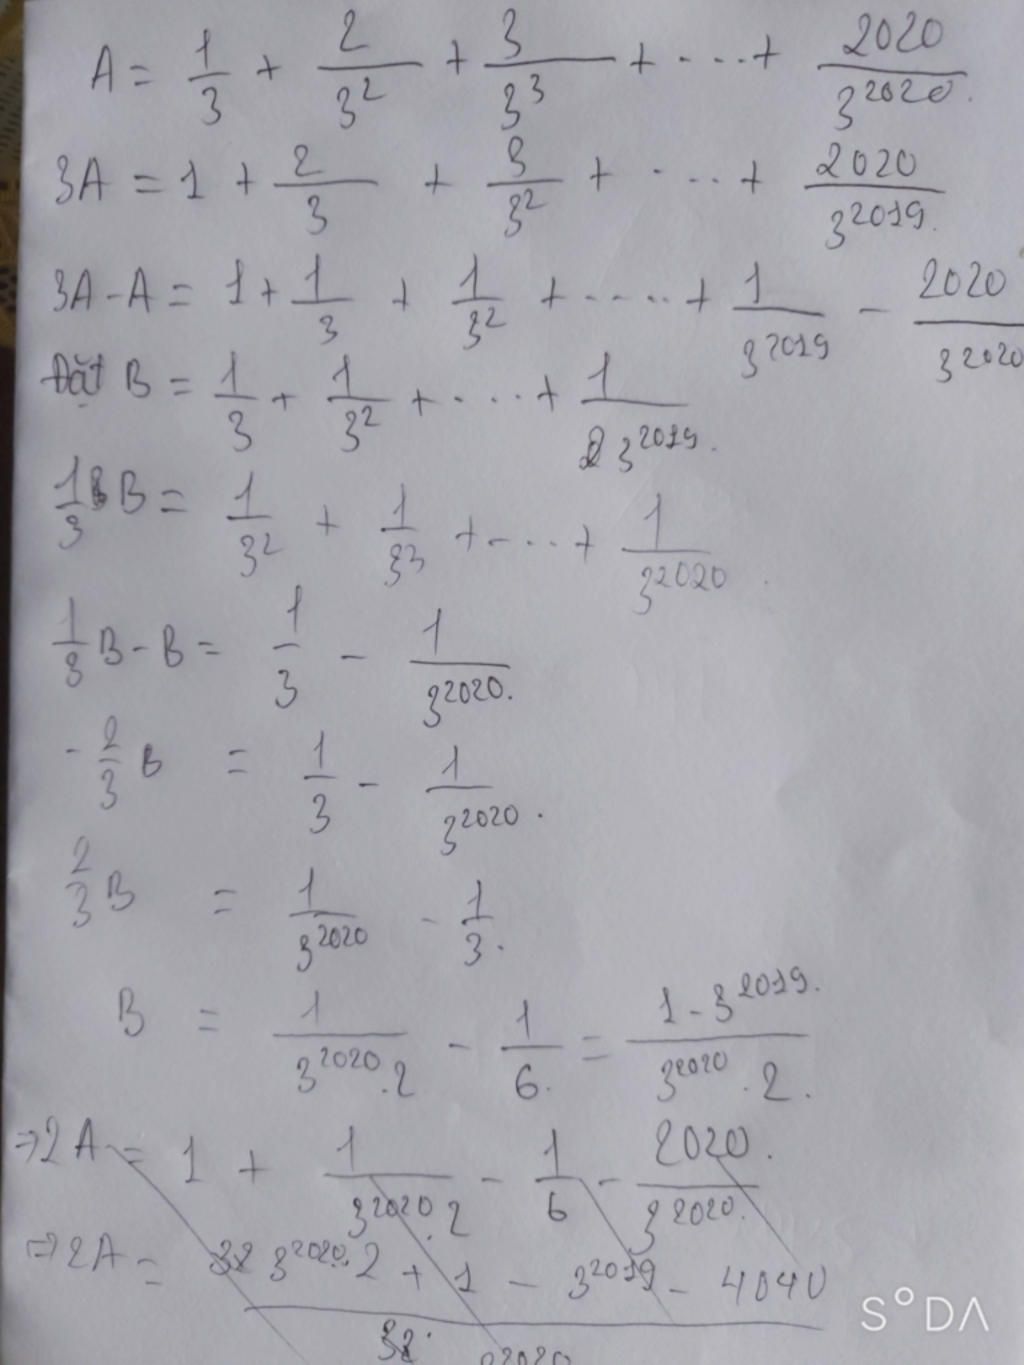 A = 1/3 + 2/3^2 + 3/3^3 + ....+ 2020/3^2020.
3A = 1 + 2/3 + 3/3^2 + ....+ 2020/3^2019.
3A - A = 1 + 1/3 + 1/3^2 + .....+ 1/3^2019 - 2020/3^2020
Đặt B = 1/3 + 1/3^2 + ....+ 1/3^2019.
1/3 B = 1/3^2 + 1/3^3 + ....+ 1/3^2020.
1/3 B - B = 1/3 - 1/3^2020.
-2/3 B = 1/3 - 1/3^2020.
2/3 B = 1/3^2020 - 1/3.
B = 1/3^2020.2 - 1/6. = 1 - 3^2019./3^2020.2.
⇒2A = 1 + 1/3^2020.2 - 1/6 - 2020./3^2020.
⇒2A = 3^2020.2 + 1 - 3^2019 - 4040
SODA